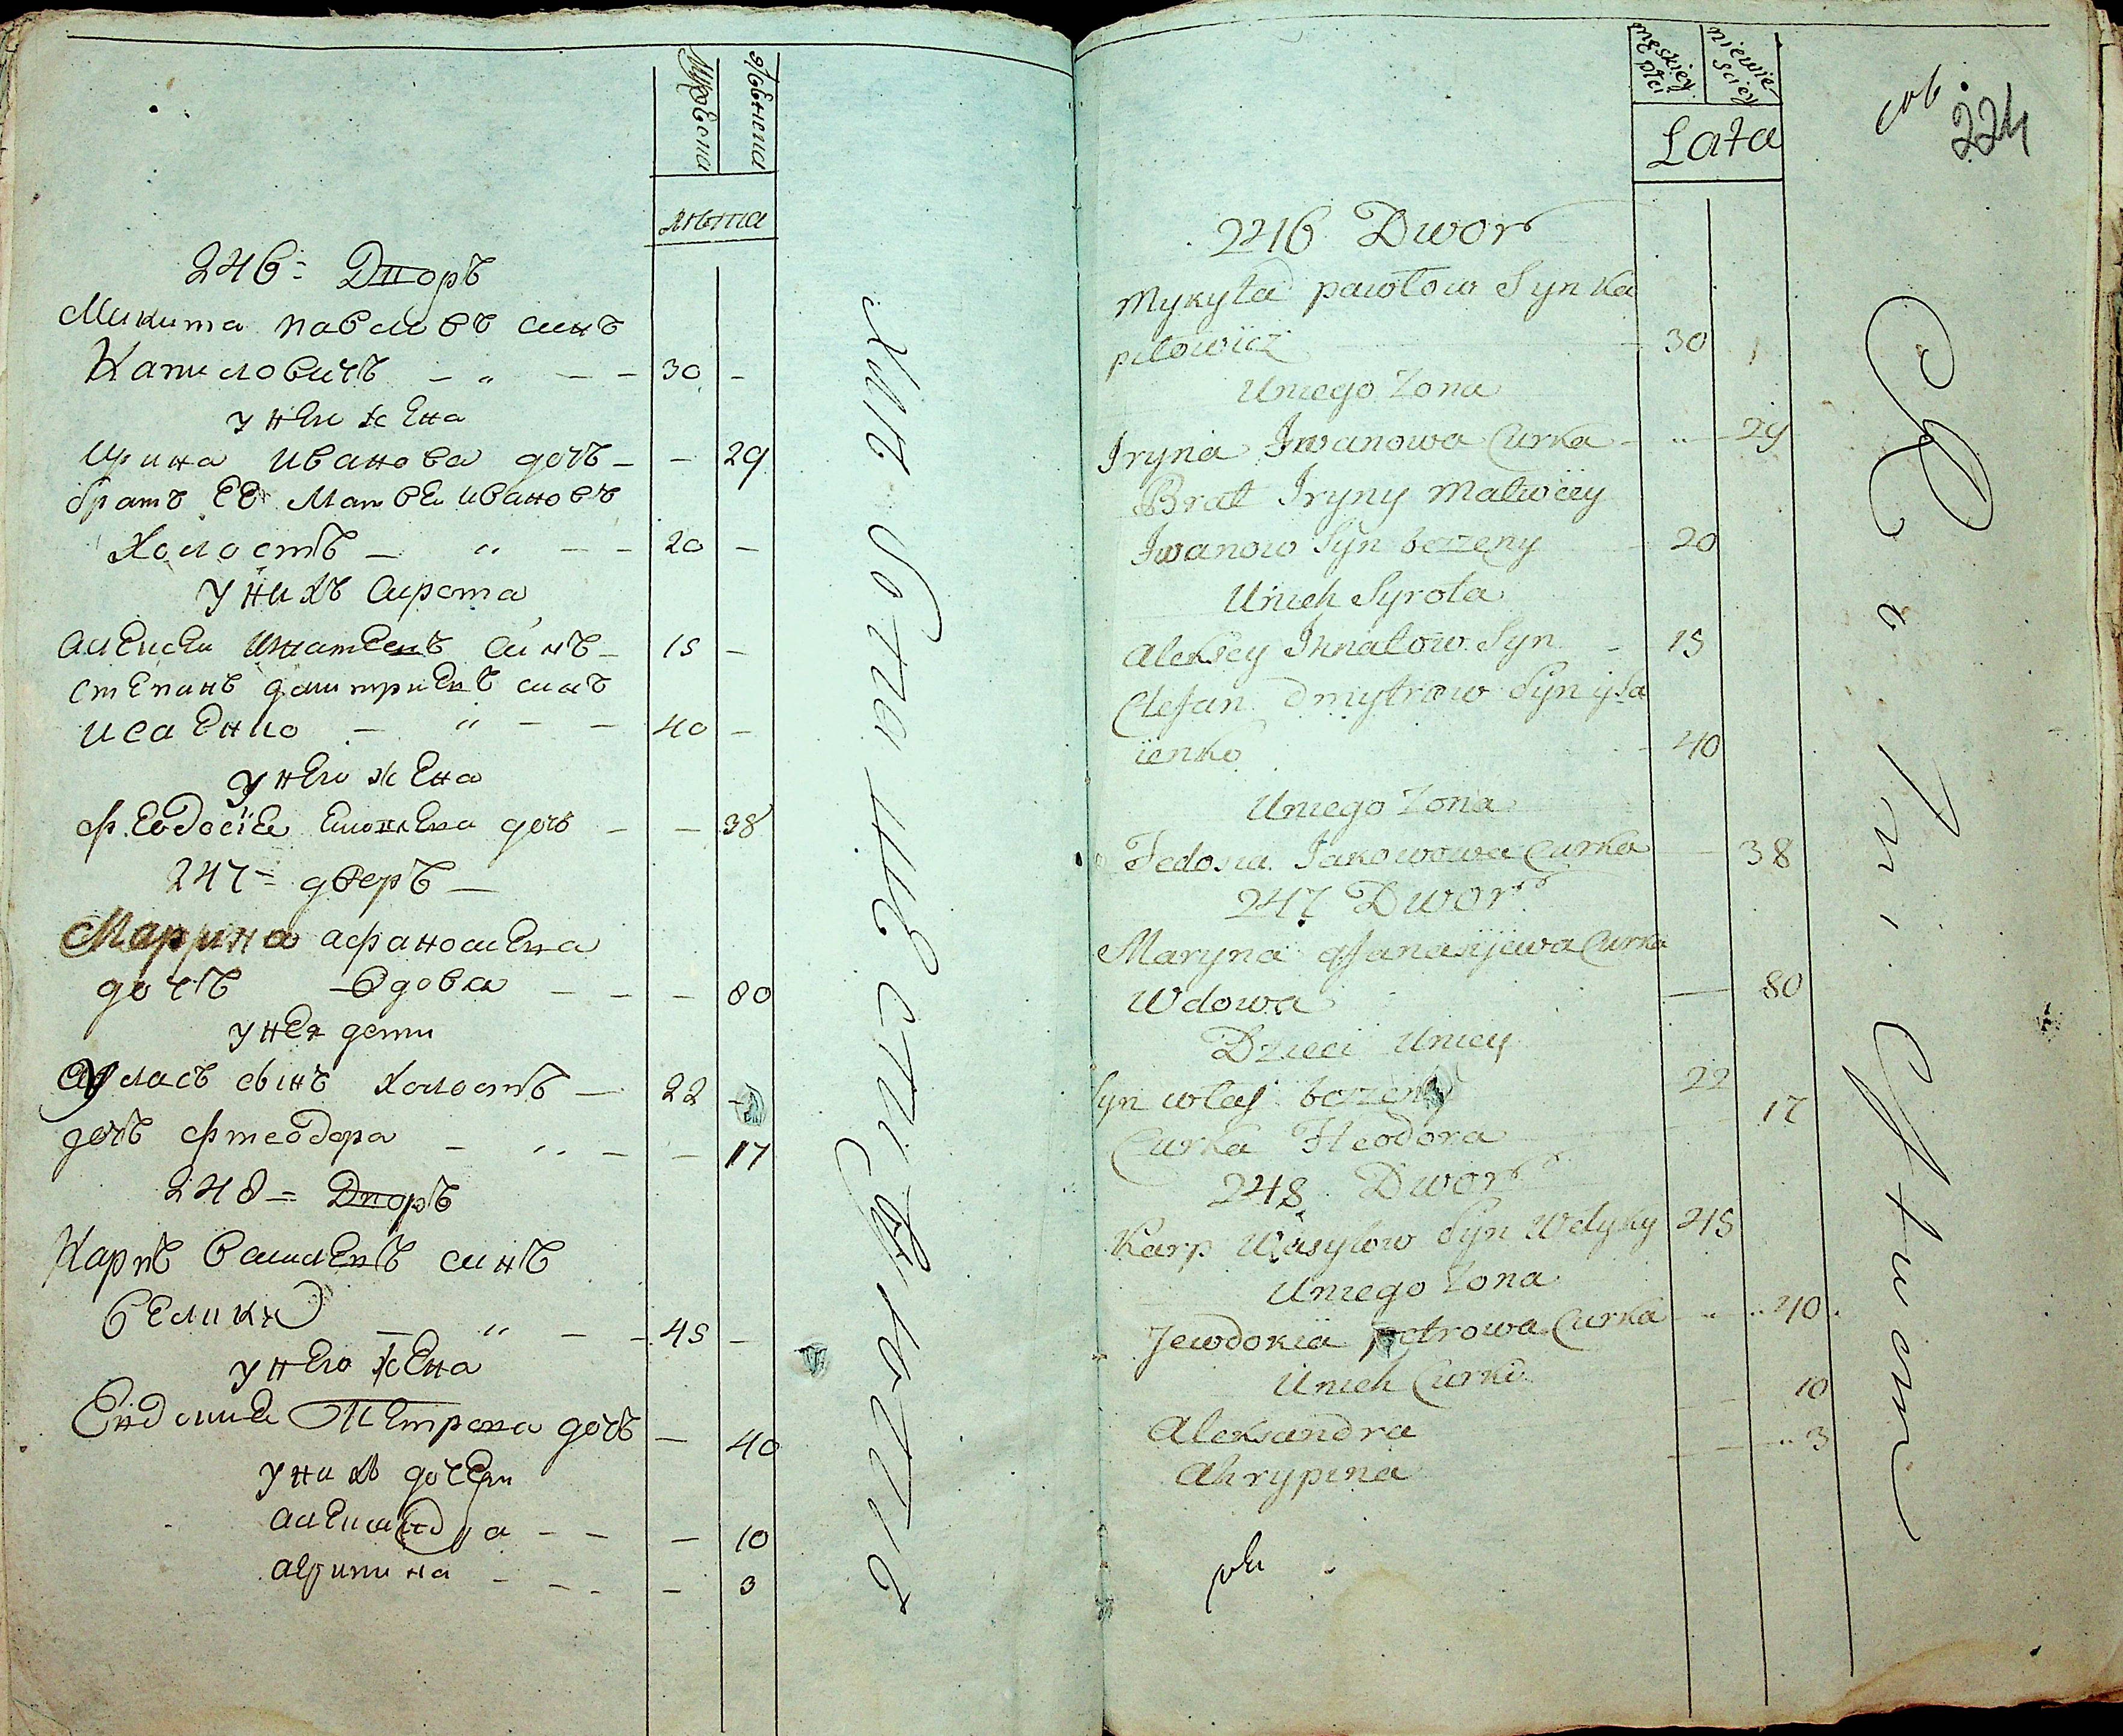 Мужеска
Женска
Лѣта
246 = Дворъ
Микита павловъ синъ
Капиловичъ — „ — — 30 —
у него жена
Ирина Иванова дочъ — — 29
братъ ее Матвеи Ивановъ
Холостъ — „ — — 20 —
у нихъ сирота
алексеи Игнатевъ синъ — 15 —
Степанъ дмитриевъ синъ
исаенко — „ — — 40 —
у него жена
Феодосїе дочъ — — 38
247 = дворъ —
Марина афанасиева
дочъ вдова — — — 80
у нея дети
власъ сынъ Холостъ — 22 —
дочъ Фтеодора — „ — — 17
248 = Дворъ
Карпъ василевъ синъ
великий — „ — — 45 —
у него жена
Евдокие Петрова дочъ — 40
у нихъ дочери
александра — — — 10
агрипина — — — 3
męskiey płci
niewie-
sciey
Lata
224
246 Dwor
Mykyta pawłow Syn Ka
piłowicz — 30
Uniego Zona
Iryna Iwanowa Curka — „ — 29
Brat Iryny Matwiey
Iwanow Syn bezzeny — 20
Unich Syrota
Aleksey Ihnatow Syn — 15
Stefan Dmytrow Syn ysa
ienko — 40
Uniego Zona
Fedosia Jakowowa Curka — 38
247 Dwor
Maryna afanasijewa Curka
Wdowa — 80
Dzieci Uniey
Syn własz bezzeny 22
Curka Fteodora 17
248 Dwor
Karp Wasylow Syn Welyky 45
Uniego Zona
Jewdokia petrowa Curka „ „ 40
Unich Curki
Aleksandra 10
Ahrypina — — „ 3